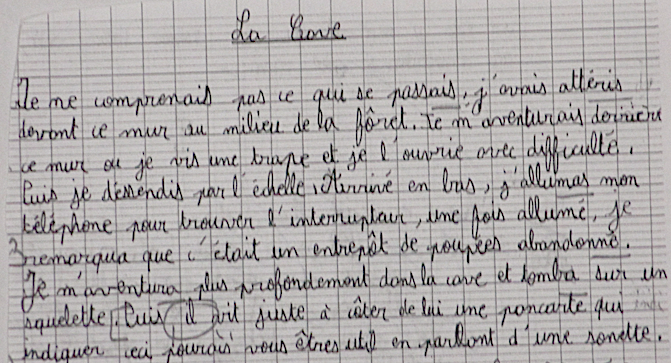 La Cave
Je me comprenais pas ce qui se passais, j'avais attéris
devant ce mur au milieu de la fôret. Je m'aventurais derrière
ce mur ou je vis une trape et je l'ouvrie avec difficulté.
Puis je dessendis par l'échelle, arrivé en bas, j'allumas mon
téléphone pour trouver l'interrupteur, une fois allumé, je
remarqua que c'était un entrepôt de poupées abandonné.
Je m'aventura plus profondement dans la cave et tomba sur un
squelette. Puis, il vit juste à côter de lui une poncarte qui
indiquer ceci pourais vous êtres util en parlant d'une sonette.